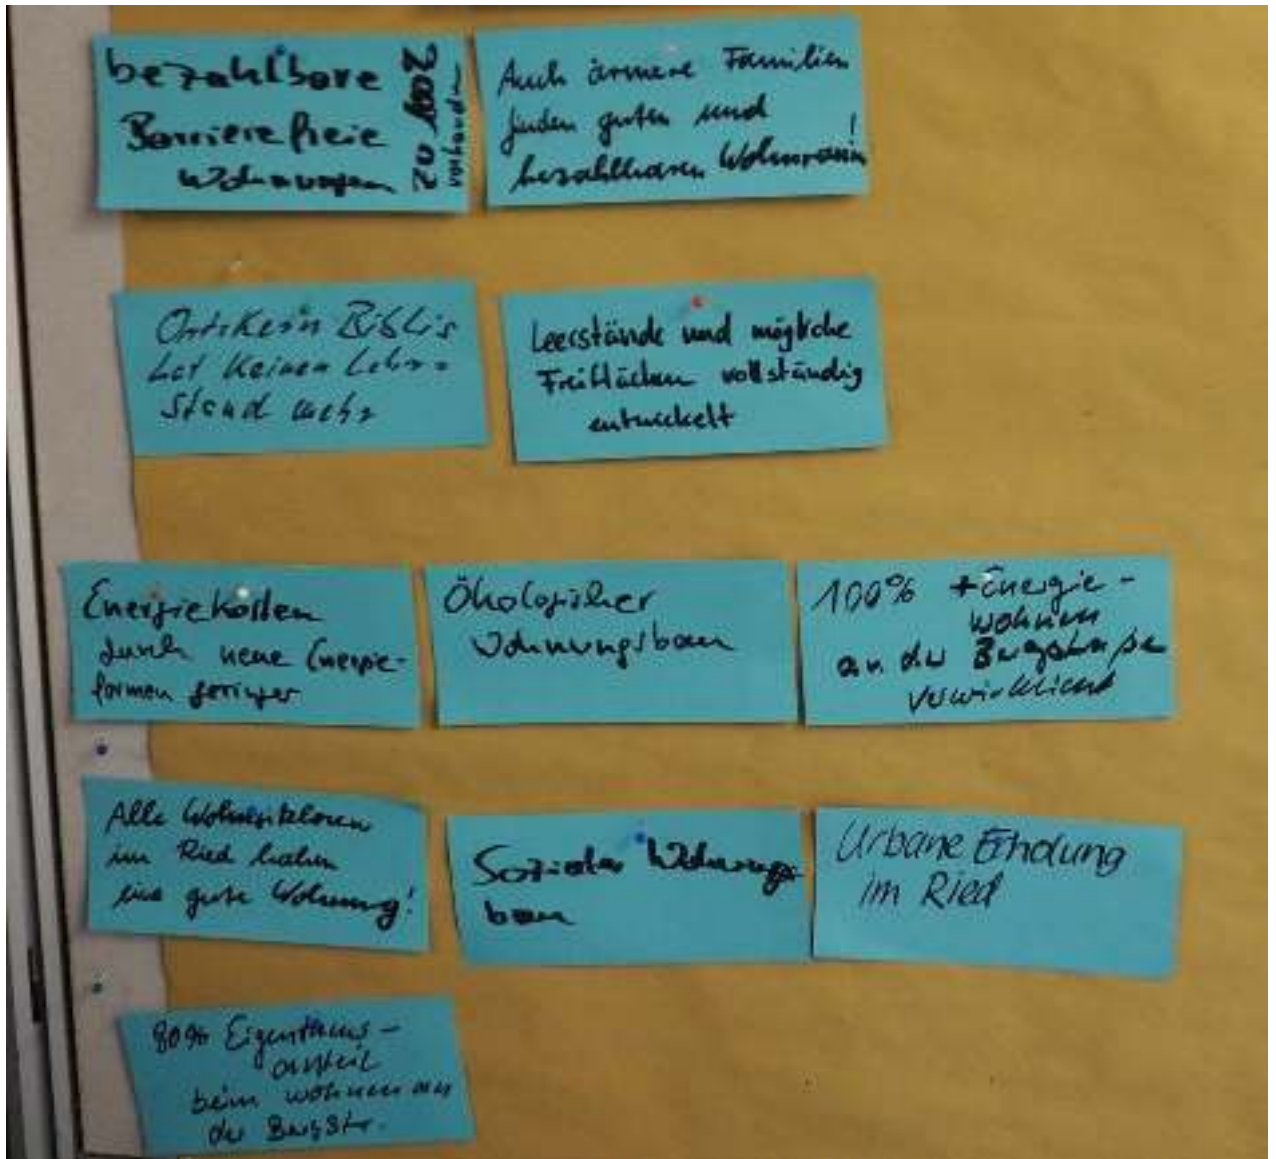 bezahlbare
Barrierefreie
Wohnungen
vorhanden
Auch ärmere Familien
finden guten und
bezahlbaren Wohnraum!
Ortskern Biblis
hat keinen Lehr-
stand mehr
Leerstände und mögliche
Freiflächen vollständig
entwickelt
Energiekosten
durch neue Energie-
formen geringer
Ökologischer
Wohnungsbau
100% +Energie-
wohnen
an der Bergstraße
verwirklicht
Alle
im Ried haben
eine gute Wohnung!
Sozialer Wohnungs
bau
Urbane Erholung
im Ried
80% Eigentums-
anteil
beim wohnen an
der BergStr.